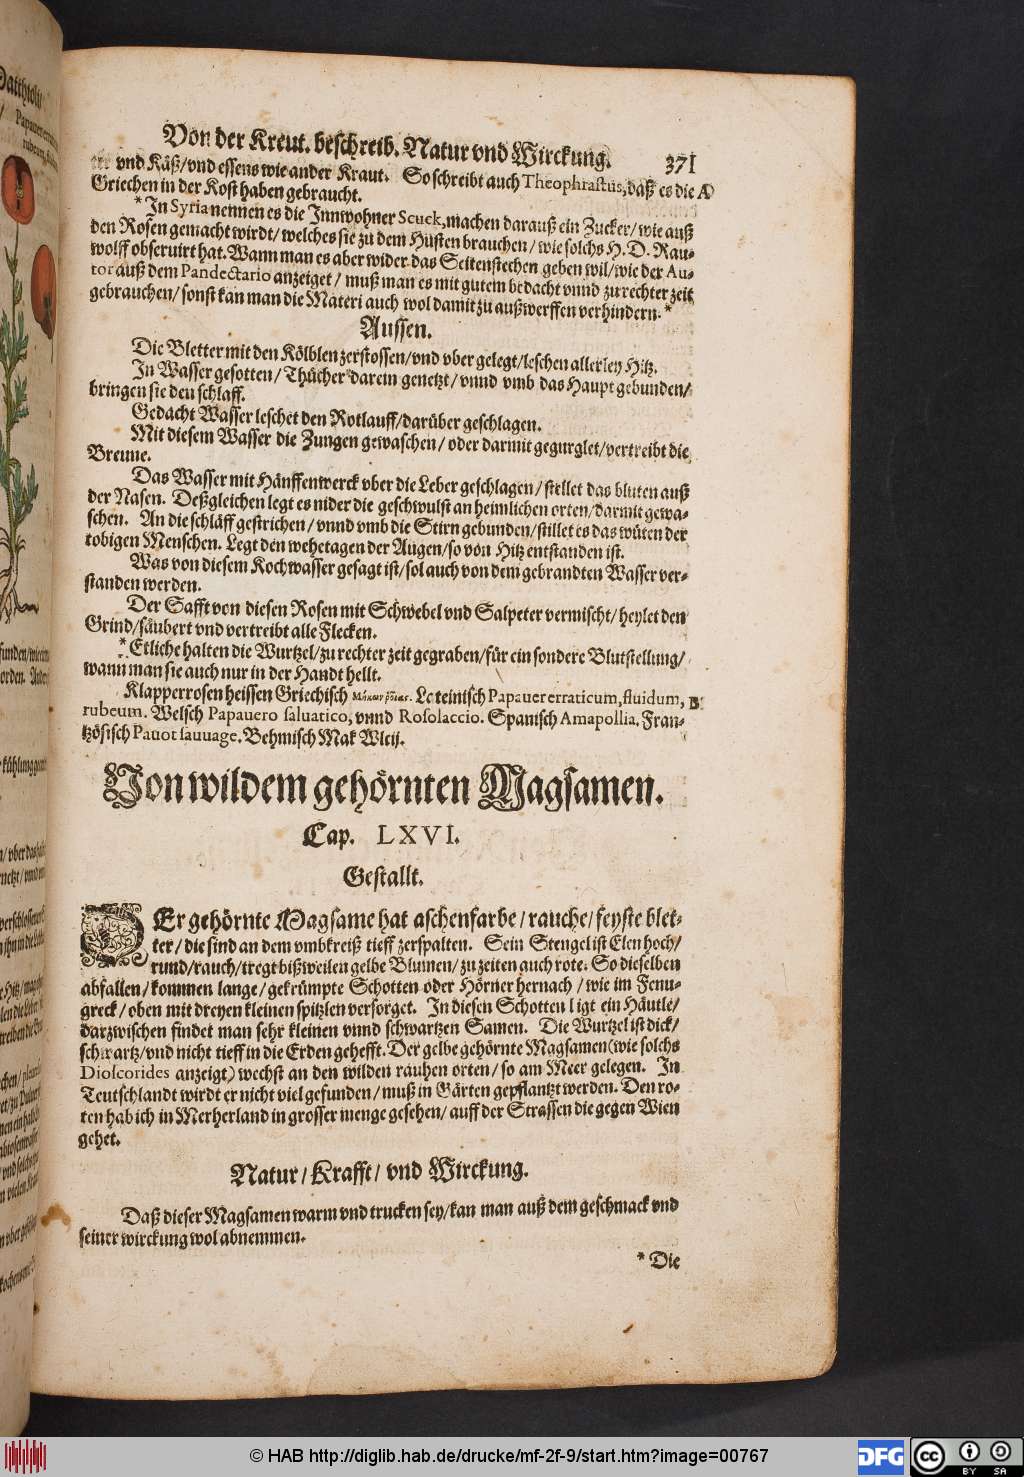 Von der Kreut. beschreib. Natur vnd Wirckung. 371
ter vnd Käß/vnd essens wie ander Kraut. So schreibt auch Theophrastus, daß es die A
Griechen in der Kost haben gebraucht.
* In Syria nennen es die Innwohner Scuck, machen darauß ein Zucker/wie auß
den Rosen gemacht wirdt/welches sie zu dem Husten brauchen/wie solchs H. D. Rau-
wolff obseruirt hat. Wann man es aber wider das Seitenstechen geben wil/wie der Au-
tor auß dem Pandectario anzeiget/muß man es mit gutem bedacht vnnd zu rechter zeit
gebrauchen/sonst kan man die Materi auch wol damit zu außwerffen verhindern. *
Aussen.
Die Bletter mit den Kölblen zerstossen/vnd vber gelegt/leschen allerley Hitz.
In Wasser gesotten/Thücher darein genetzt/vnnd vmb das Haupt gebunden/
bringen sie den schlaff.
Gedacht Wasser leschet den Rotlauff/darüber geschlagen.
Mit diesem Wasser die Zungen gewaschen/oder darmit gegurglet/vertreibt die
Breune.
Das Wasser mit Hänffenwerck vber die Leber geschlagen/stellet das bluten auß
der Nasen. Deßgleichen legt es nider die geschwulst an heimlichen orten/darmit gewa-
schen. An die schläff gestrichen/vnnd vmb die Stirn gebunden/stillet es das wüten der
tobigen Menschen. Legt den wehetagen der Augen/so von Hitz entstanden ist.
Was von diesem Kochwasser gesagt ist/sol auch von dem gebrandten Wasser ver-
standen werden.
Der Safft von diesen Rosen mit Schwebel vnd Salpeter vermischt/heylet den
Grind/säubert vnd vertreibt alle Flecken.
* Etliche halten die Wurtzel/zu rechter zeit gegraben/für ein sondere Blutstellung/
wann man sie auch nur in der Handt hellt.
Klapperrosen heissen Griechisch Μήκων ῥοιάς. Lateinisch Papauer erraticum, fluidum, B
rubeum. Welsch Papauero saluatico, vnnd Rosolaccio. Spanisch Amapollia. Fran-
tzösisch Pauot sauuage. Behmisch Mak Wlcij.
Von wildem gehörnten Magsamen.
Cap. LXVI.
Gestallt.
DEr gehörnte Magsame hat aschenfarbe/rauche/feyste blet-
ter/die sind an dem vmbkreiß tieff zerspalten. Sein Stengel ist Elen hoch/
rund/rauch/tregt bißweilen gelbe Blumen/zu zeiten auch rote. So dieselben
abfallen/kommen lange/gekrümpte Schotten oder Hörner hernach/wie im Fenu-
greck/oben mit dreyen kleinen spitzlen versorget. In diesen Schotten ligt ein Häutle/
darzwischen findet man sehr kleinen vnnd schwartzen Samen. Die Wurtzel ist dick/
schwartz/vnd nicht tieff in die Erden gehefft. Der gelbe gehörnte Magsamen (wie solchs
Dioscorides anzeigt) wechst an den wilden rauhen orten/so am Meer gelegen. In
Teutschlandt wirdt er nicht viel gefunden/muß in Gärten gepflantzt werden. Den ro-
ten hab ich in Merherland in grosser menge gesehen/auff der Strassen die gegen Wien
gehet.
Natur/Krafft/vnd Wirckung.
Daß dieser Magsamen warm vnd trucken sey/kan man auß dem geschmack vnd
seiner wirckung wol abnemmen.
* Die
© HAB http://diglib.hab.de/drucke/mf-2f-9/start.htm?image=00767
DFG
cc BY SA